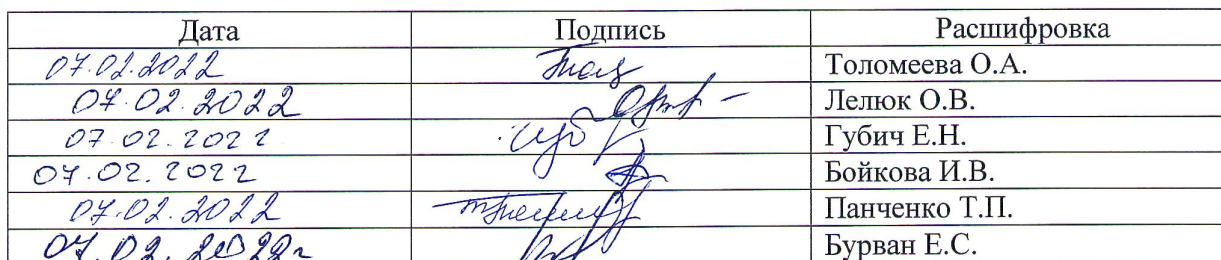 Дата Подпись Расшифровка
07.02.2022 Толомеева О.А.
07.02.2022 Лелюк О.В.
07.02.2022 Губич Е.Н.
07.02.2022 Бойкова И.В.
07.02.2022 Панченко Т.П.
07.02.2022г Бурван Е.С.